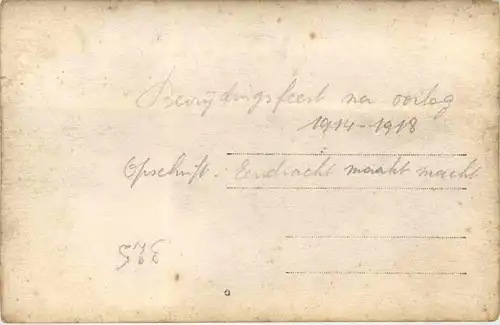 Bevrijdingsfeest na oorlog
1914-1918
Opschrift: Eendracht maakt macht